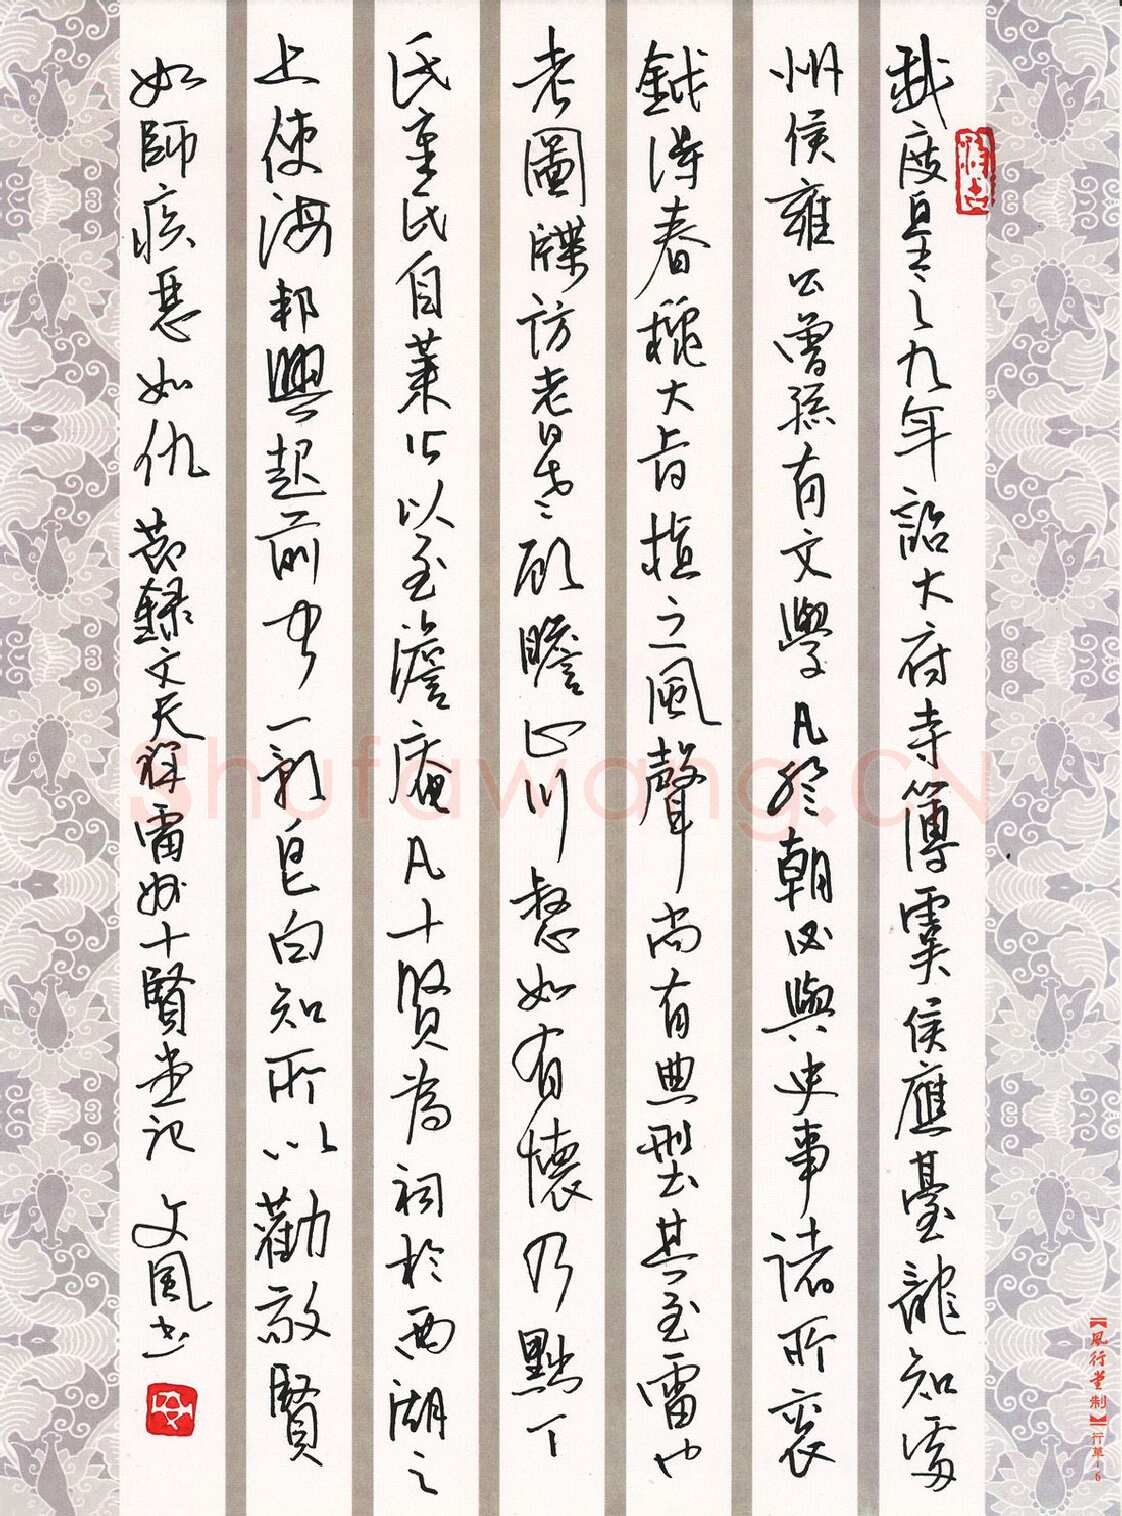 我度皇之九年詔大府寺簿虞侯應龍知雷
州侯雍公曾孫有文學凡於朝必與史事諸所褒
鉞得春龝大旨植之風聲尚有典型其至雷也
考圖牒訪老叟顧瞻山川愁如有懷乃黜丁
氏章氏自萊公以至澹庵凡十賢為祠於西湖之
上使海邦興起前守一影皂白知所以勸敬賢
如師疾惡如仇 節錄文天祥雷州十賢堂記 文風書
【風行堂制】行草-6
Shufawang.CN